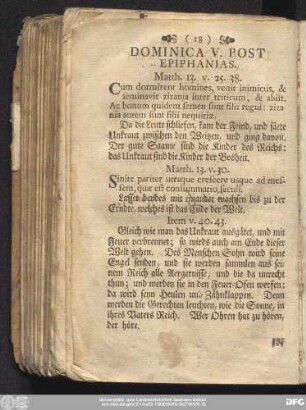 ( 18 )
DOMINICA V. POST
EPIPHANIAS.
Matth. 13. v. 25. 38.
Cum dormirent homines, venit inimicus, &
seminavit zizania inter triticum, & abiit.
Ac bonum quidem semen sunt filii regni: zizania
autem sunt filii nequitiæ.
Da die Leute schliefen, kam der Feind, und säete
Unkraut zwischen den Weitzen, und ging davon.
Der gute Saame sind die Kinder des Reichs:
das Unkraut sind die Kinder der Bosheit.
Matth. 13. v. 30.
Sinite pariter utraque crescere usque ad messem,
quæ est consummatio seculi.
Lasset beydes mit einander wachsen bis zu der
Erndte, welches ist das Ende der Welt.
Item v. 40. 43.
Gleich wie man das Unkraut ausgätet, und mit
Feuer verbrennet; so wirds auch am Ende dieser
Welt gehen. Des Menschen Sohn wird seine
Engel senden, und sie werden sammlen aus seinem
Reich alle Aergernisse, und die da unrecht
thun; und werden sie in den Feuer-Ofen werfen:
da wird seyn Heulen und Zähnklappen. Denn
werden die Gerechten leuchten, wie die Sonne, in
ihres Vaters Reich. Wer Ohren hat zu hören,
der höre.